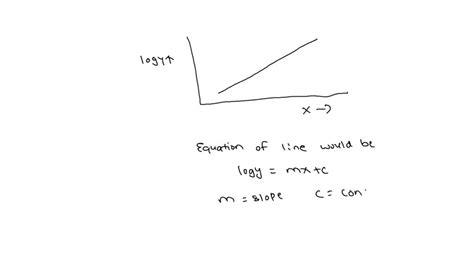 logy↑
x →
Equation of line would be
logy = mx+c
m = slope c = con.